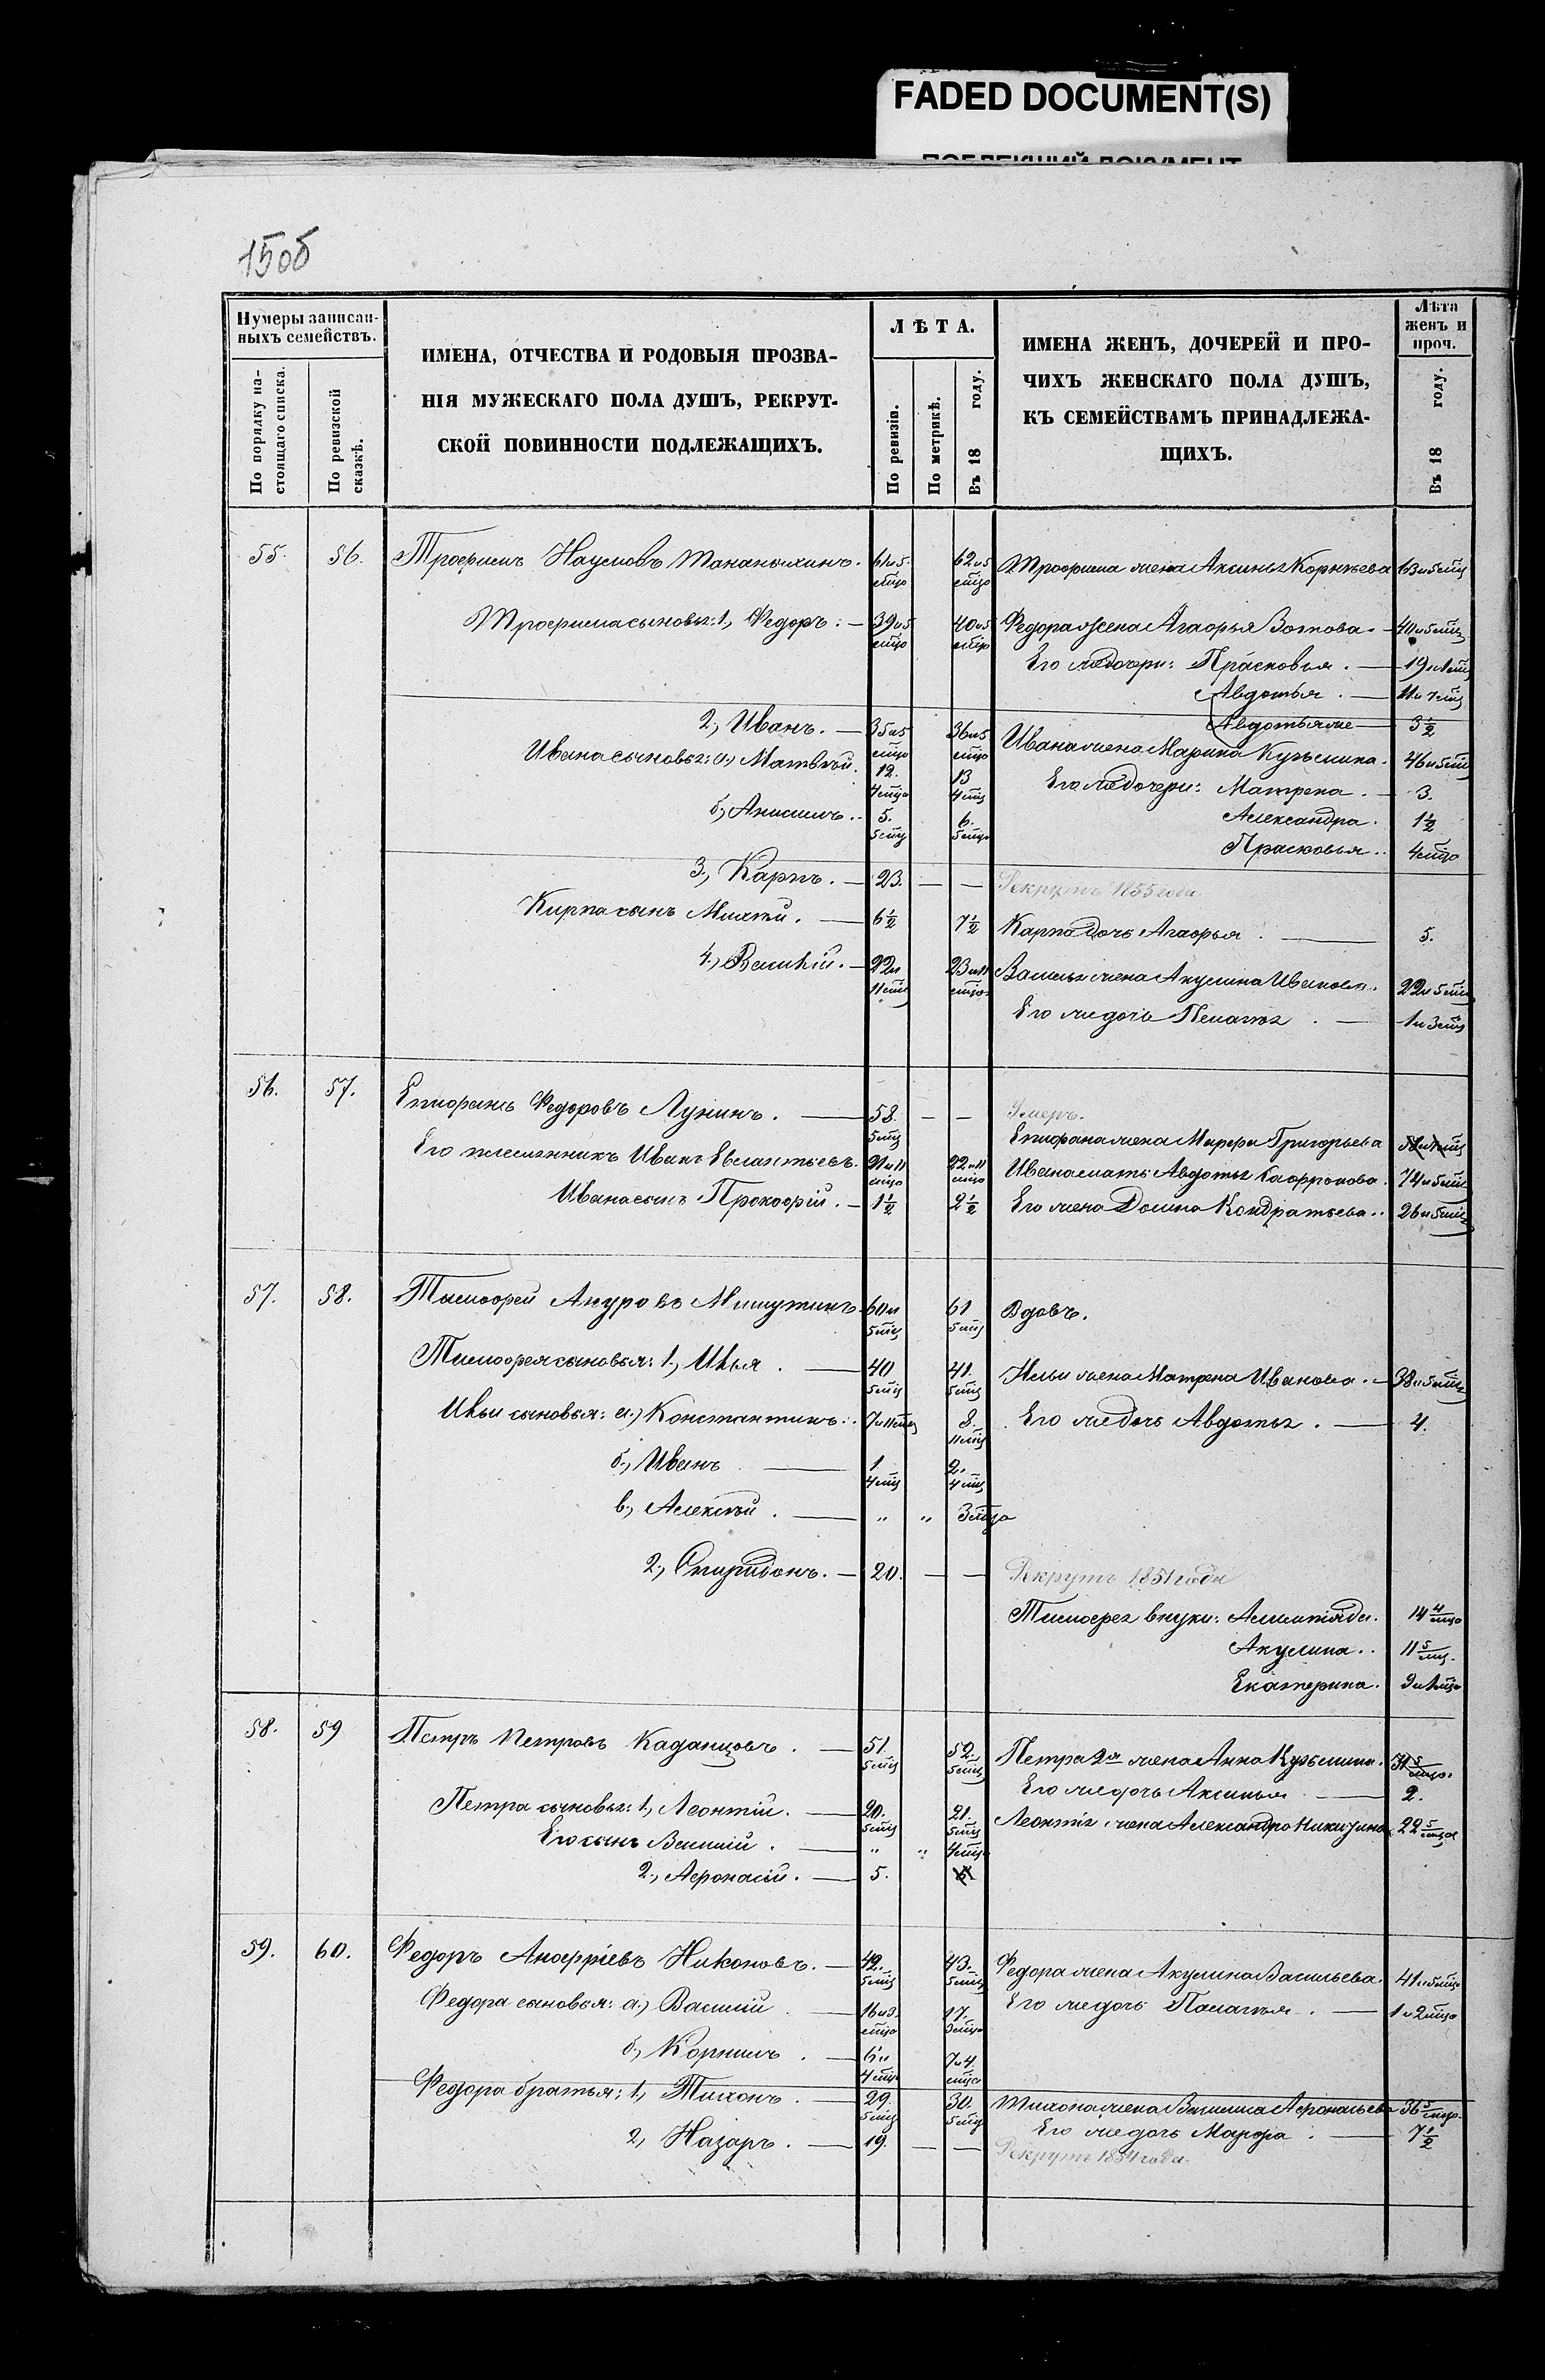 FADED DOCUMENT(S)
150б
Нумеры записан-
ныхъ семействъ.
По порядку на-
стоящаго списка.
По ревизской
сказкѣ.
ИМЕНА, ОТЧЕСТВА И РОДОВЫЯ ПРОЗВА-
НІЯ МУЖЕСКАГО ПОЛА ДУШЪ, РЕКРУТ-
СКОЙ ПОВИННОСТИ ПОДЛЕЖАЩИХЪ.
ЛѢТА.
По ревизіи.
По метрикѣ.
Въ 18 году.
ИМЕНА ЖЕНЪ, ДОЧЕРЕЙ И ПРО-
ЧИХЪ ЖЕНСКАГО ПОЛА ДУШЪ,
КЪ СЕМЕЙСТВАМЪ ПРИНАДЛЕЖА-
ЩИХЪ.
Лѣта
женъ и
проч.
Въ 18 году.
55. 56. Трофимъ Наумовъ Мананыхинъ. 61 и 5 мцо 62 и 5 мцо Трофима жена Аксинья Корнѣева 63 и 5 мц
Трофима сыновья: 1, Федоръ. — 39 и 5 мцо 40 и 5 мцо Федора жена Агафья Зотова. — 40 и 5 мц
Его же дочери: Прасковья. — 19 и 1 мц
Авдотья. — 11 и 7 мц
Авдотья же — 3 ½
2, Иванъ. — 35 и 5 мцо 36 и 5 мцо Ивана жена Марина Кузьмина. 46 и 5 мц
Ивана сыновья: а) Матвѣй. 12. 4 мцо 13 4 мц Его же дочери: Матрена. — 3.
б, Анисимъ. 5. 5 мц 6. 5 мцо Александра. 1 ½
Прасковья. 4 мцо
3, Карпъ. — 23. — — Рекрутъ 1855 года
Карпа сынъ 6 ½ 7 ½ Карпа дочь Агафья. — 5.
4, Василій. — 22 и 11 мц 23 и 11 мцо Василья жена Акулина Иванова. 22 и 5 мц
Его же дочь Пелагея. — 1 и 3 мц
56. 57. Епифанъ Федоровъ Лунинъ. — 58. 5 мц — — Умеръ.
Епифана жена Марфа Григорьева
Его племянникъ Иванъ 21 и 11 мцо 22 и 11 мцо Ивана мать Авдотья 74 и 5 мц
Ивана сынъ Прокофій. — 1 ½ 2 ½ Его жена Домна Кондратьева. 26 и 5 мц
57. 58. Тимофей Мишутинъ 60 и 5 мц 61 5 мц Вдовъ.
Тимофея сыновья: 1, Илья. — 40 5 мц 41. 5 мц Ильи жена Матрена Иванова. — 38 и 5 мц
Ильи сыновья: а) Константинъ. 7 и 11 мц 8. 11 мц Его же дочь Авдотья. — 4.
б, Иванъ — 1 4 мц 2. 4 мц
в, Алексѣй. — „ „ 3 мца
2, Спиридонъ. — 20. — — Рекрутъ 1851 года
Тимофея внуки: 14 4/мцо
Акулина. 11 5/мц.
Екатерина. 9 и 1 мцо
58. 59 Петръ Петровъ Каданцовъ. — 51. 5 мц 52. 5 мц Петра 2я жена Анна Кузьмина. 31 5/мцо.
Его же дочь Аксинья — 2.
Петра сыновья: 1, Леонтій. — 20. 5 мц 21. 5 мц Леонтія жена Александра Никитина 22 5/мцо
Его сынъ Василій. — „ „ 4 мц
2, Афонасій. — 5. 6
59. 60. Федоръ Никоновъ. — 42. 5 мц 43. 5 мц Федора жена Акулина Васильева. 41 и 5 мцо
Федора сыновья: а) Василій — 16 и 3. мцо 17. 3 мцо Его же дочь Пелагея. — 1 и 2 мцо
б, Корнилъ. — 6 и 4 мц 7 и 4 мцо
Федора братья: 1, Тихонъ. — 29 5 мц 30. 5 мц Тихона жена Василиса Афонасьева 36 5/мцо
Его же дочь Марфа. — 7 ½
2, Назаръ. — 19. — — Рекрутъ 1854 года